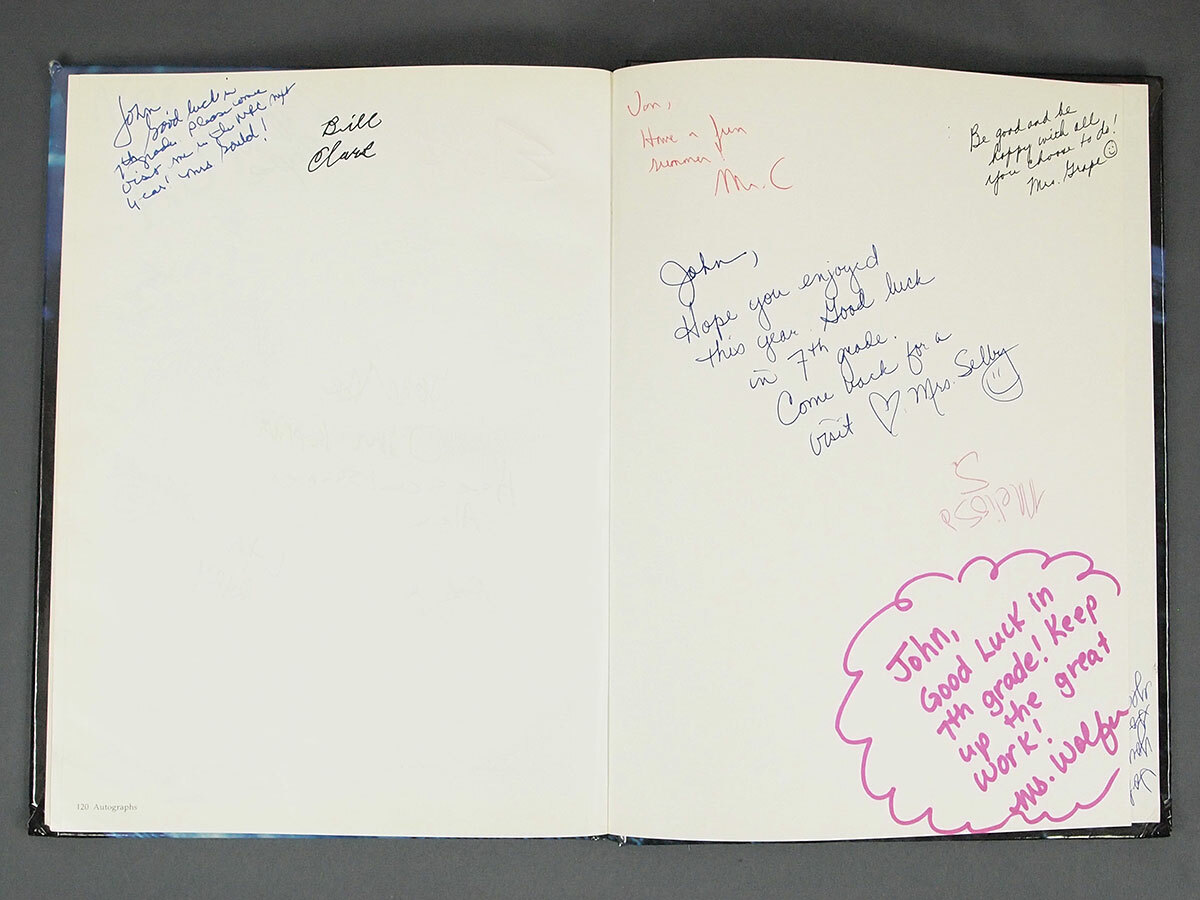 John
Good luck in
7th grade. Please come
visit me in the next
year! Mrs.
Bill
Clare
120 Autographs
Jon,
Have a fun
summer!
Mr. C
Be good and be
happy with all
you choose to do!
Mrs. Grape
John,
Hope you enjoyed
this year. Good luck
in 7th grade.
Come back for a
visit ♡. Mrs. Selby
Melissa
S
John,
Good Luck in
7th grade! Keep
up the great
work!
Ms. Wolfer